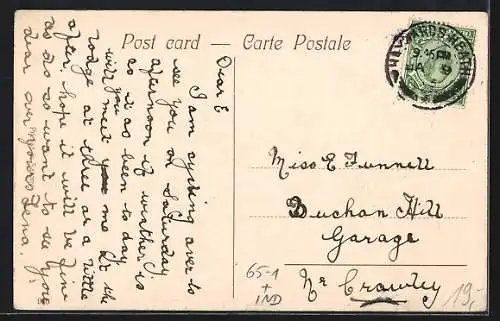 Post card — Carte Postale
HAYWARDS HEATH
9.45 PM
JA 8
Dear E
I am cycling over to
see you on Saturday
afternoon if weather is
as it as been to day
will you meet me at the
lodge at three or a little
after. hope it will be fine
as do as want to see you
dear over
Lena.
Miss E Funnell
Buchan Hill
Garage
Nr Crawley
65-1
+
IND
19,-